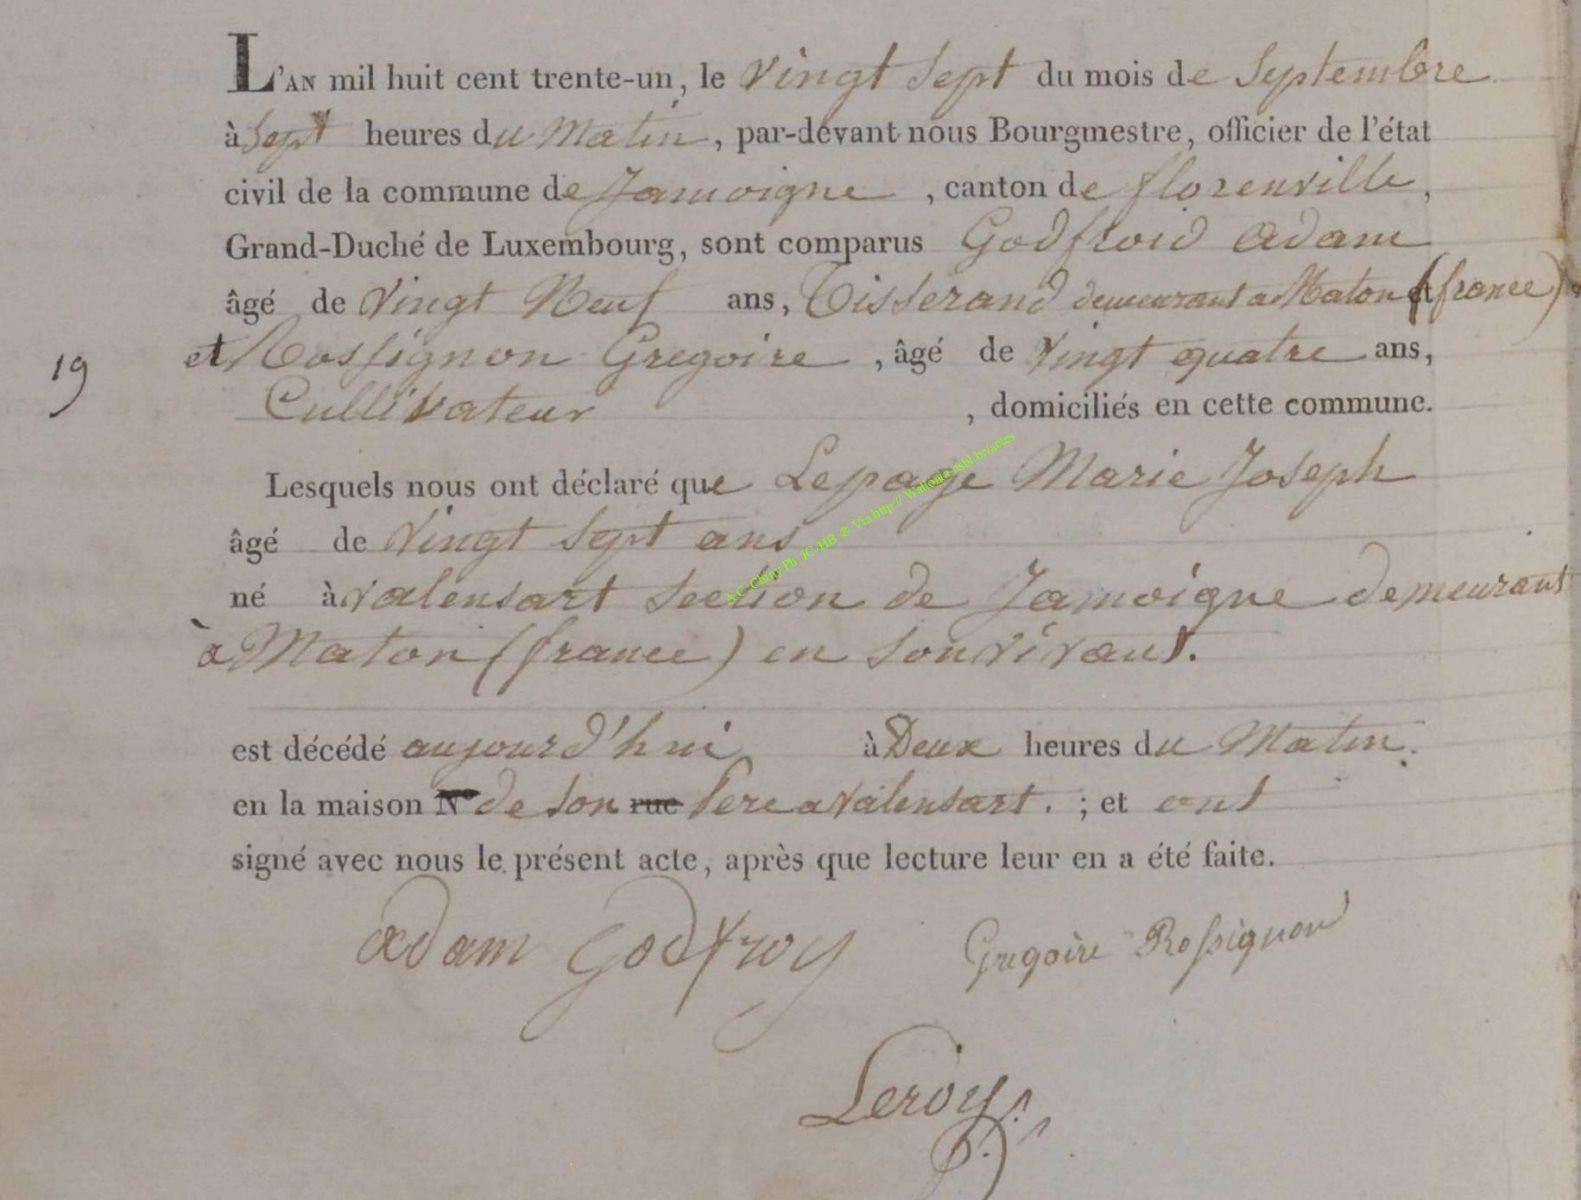 L'AN mil huit cent trente-un, le vingt sept du mois de Septembre
à sept heures du Matin, par-devant nous Bourgmestre, officier de l'état
civil de la commune de Jamoigne, canton de florenville,
Grand-Duché de Luxembourg, sont comparus Godfroid Adam
âgé de vingt Neuf ans, Tisserand demeurant a Maton (france)
et Rossignon Gregoire, âgé de vingt quatre ans,
19
Cultivateur, domiciliés en cette commune.
Lesquels nous ont déclaré que Lepage Marie Joseph
âgé de vingt sept ans
né à valensart section de Jamoigne demeurant
à Maton (france) en son vivant.
est décédé aujourd'hui à Deux heures du Matin.
en la maison N° de son rue Pere a valensart. ; et ont
signé avec nous le présent acte, après que lecture leur en a été faite.
Adam Godfroy Gregoire Rossignon
Leroy